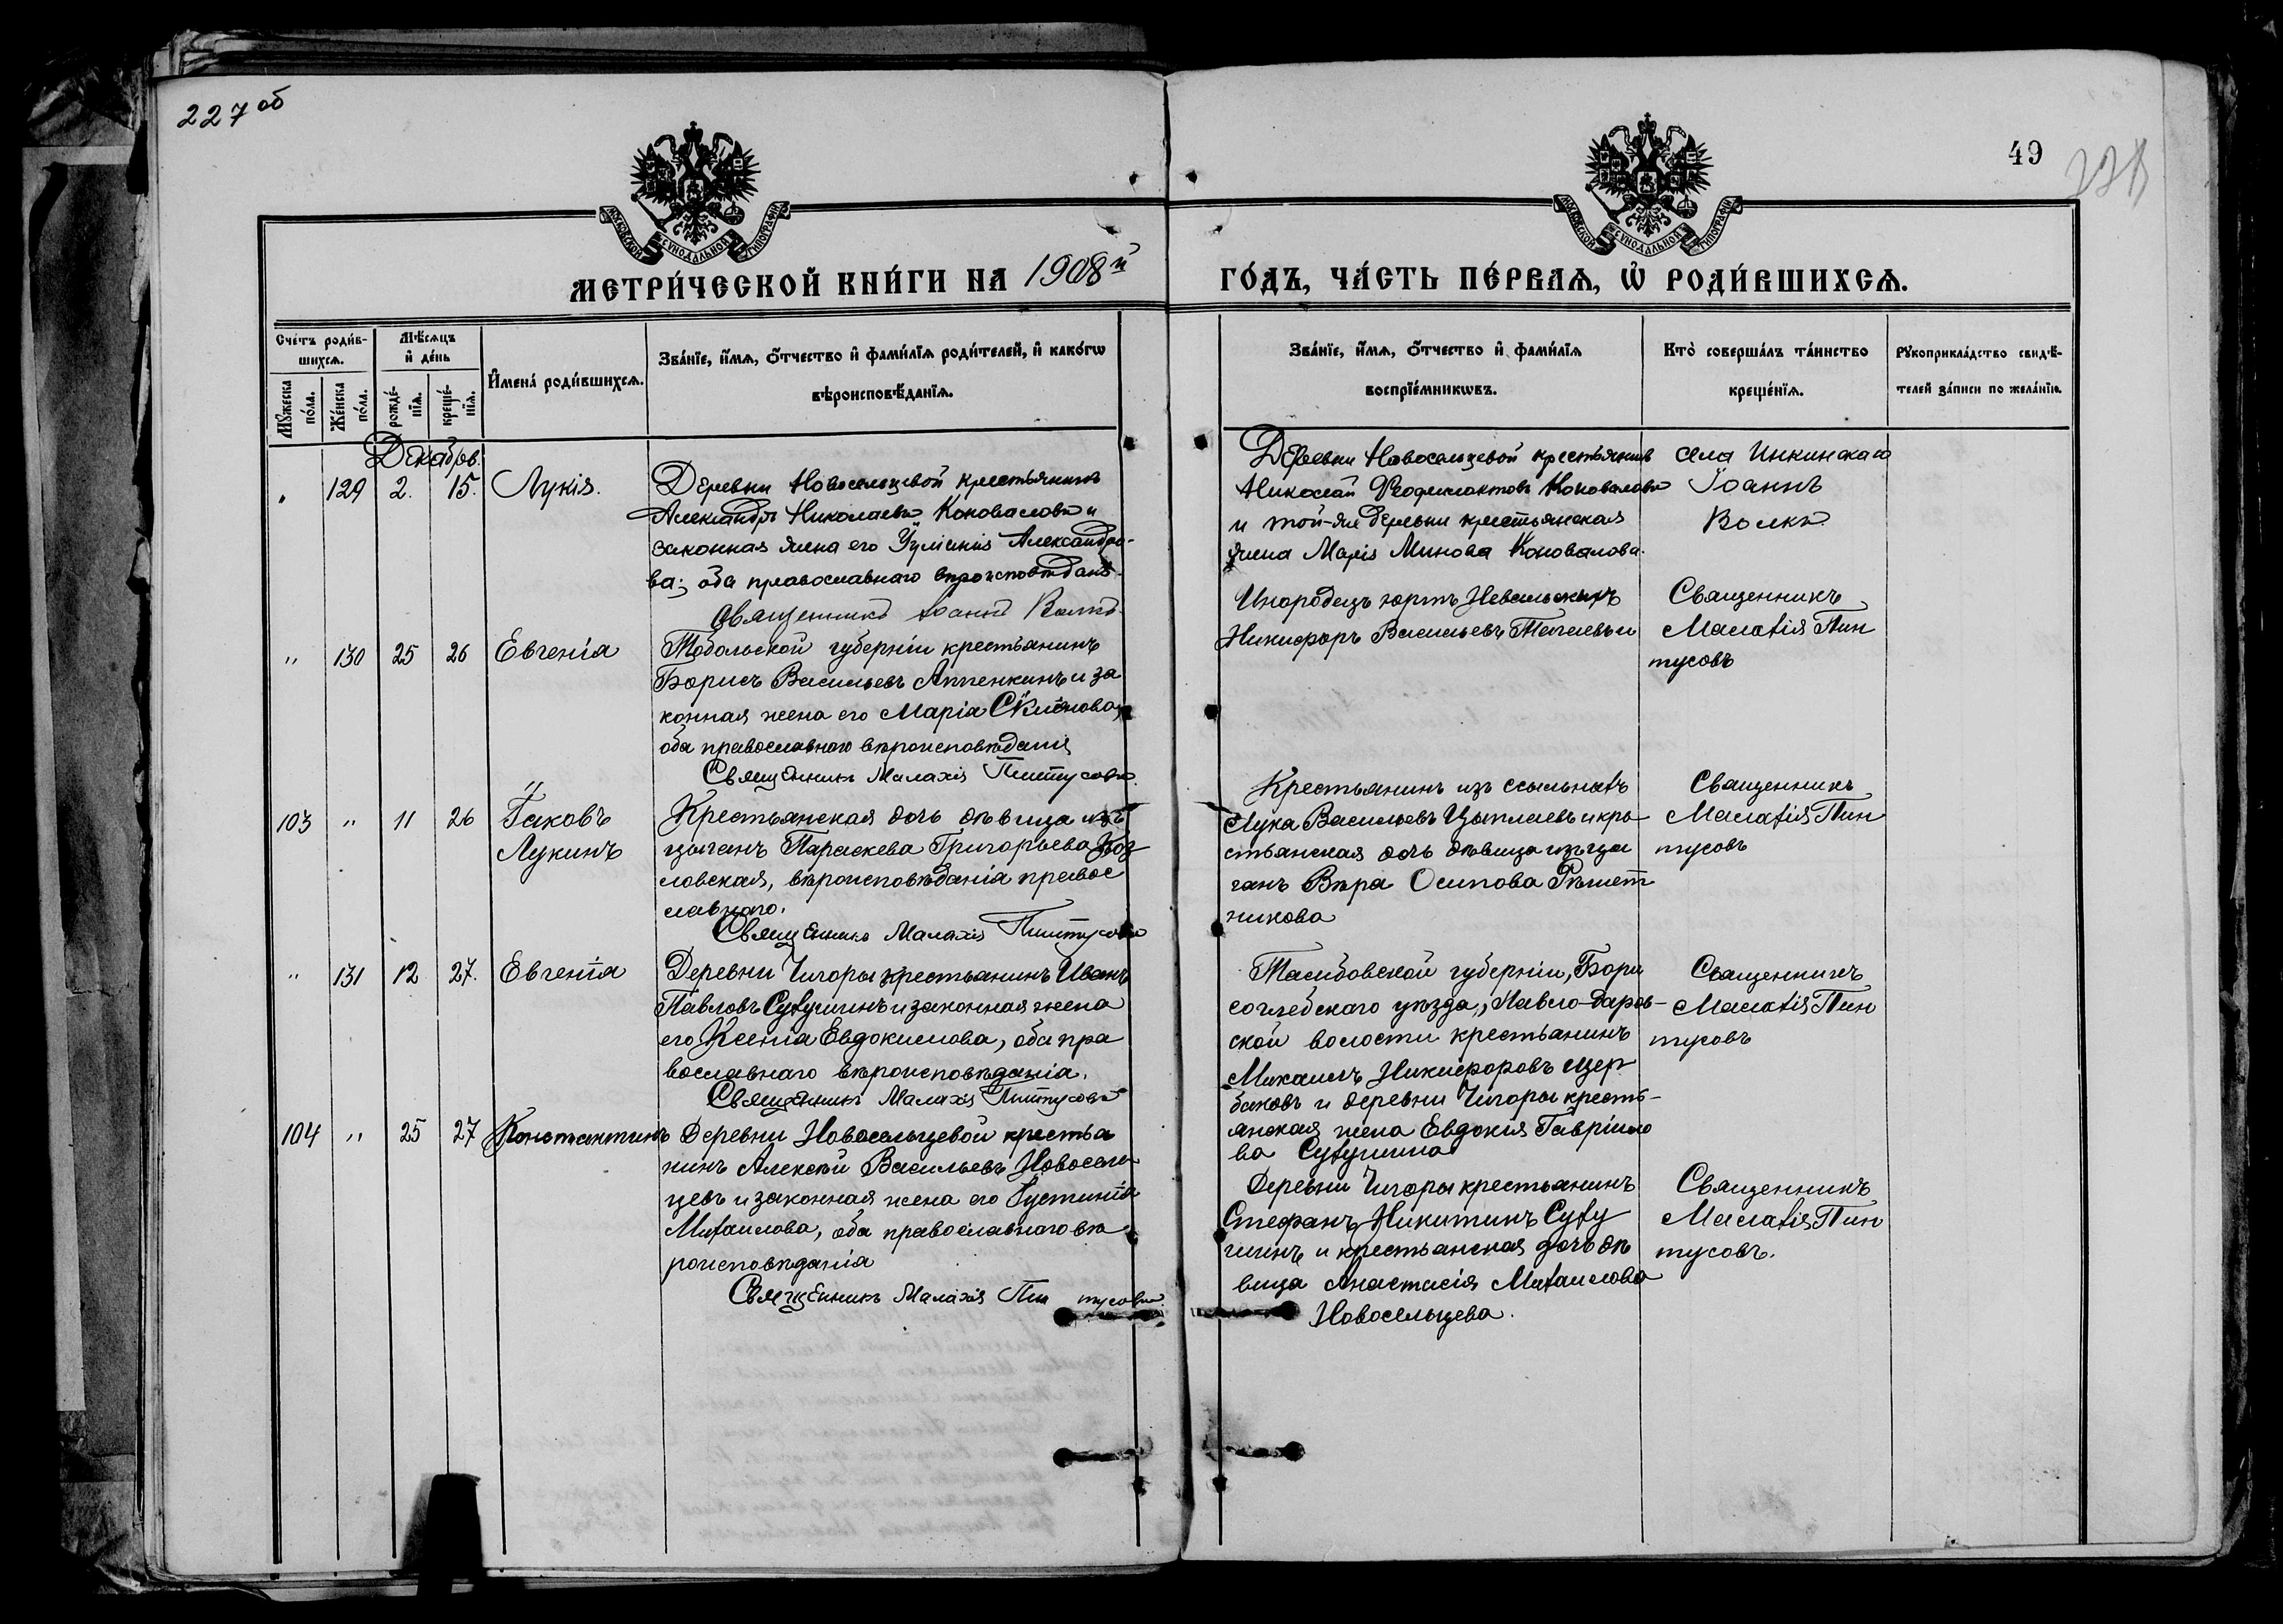 227 об
49
МОСКОВСКОЙ СѴНОДАЛЬНОЙ ТИПОГРАФІИ
МОСКОВСКОЙ СѴНОДАЛЬНОЙ ТИПОГРАФІИ
МЕТРИ́ЧЕСКОЙ КНИ́ГИ НА 1908й
ГО́ДЪ, ЧА́СТЬ ПЕ́РВАѦ, Ѽ РОДИ́ВШИХСѦ.
Сче́тъ роди́в-
шихсѧ.
Мꙋ́жеска по́ла.
Же́нска по́ла.
Мѣ́сѧцъ
и҆ де́нь
рожде́-
нїѧ.
креще́-
нїѧ.
И҆мена́ роди́вшихсѧ.
Зва́нїе, и҆́мѧ, ѻ҆́тчество и҆ фами́лїѧ роди́телей, и҆ како́гѡ
вѣроисповѣ́данїѧ.
Зва́нїе, и҆́мѧ, ѻ҆́тчество и҆ фами́лїѧ
воспрїе́мникѡвъ.
Кто̀ соверша́лъ та́инство
креще́нїѧ.
Рꙋкоприкла́дство свидѣ́-
телей за́писи по жела́нїю.
Декабрь.
129 2. 15. Лукія.
Деревни Новосельцевой крестьянинъ
Александръ Николаевъ Коноваловъ и
законная жена его Александро-
ва; оба православнаго вѣроисповѣдан.
Священникъ Іоаннъ Волковъ
Деревни Новосельцевой крестьянинъ
Николай Феофилактовъ Коноваловъ
и той-же деревни крестьянская
жена Марія Минова Коновалова.
села Инкинскаго
Іоаннъ
Волковъ
" 130 25 26 Евгенія
Тобольской губерніи крестьянинъ
Борисъ Васильевъ Аппенкинъ и за
конная жена его Марія
оба православнаго вѣроисповѣданія
Священникъ Малахія Пинтусовъ
Инородецъ юртъ Невальскихъ
Никифоръ Васильевъ
Священникъ
Малахія Пин
тусовъ
103 " 11 26 Іаковъ
Лукинъ
Крестьянская дочь дѣвица изъ
цыганъ Параскева Григорьева Коз
ловская, вѣроисповѣданія правос
лавнаго.
Священникъ Малахія Пинтусовъ
Крестьянинъ изъ ссыльныхъ
Лука Васильевъ Цыплаевъ и кре
стьянская дочь дѣвица изъ цы
ганъ Вѣра Осипова Рѣшет
никова
Священникъ
Малахія Пин
тусовъ
" 131 12 27. Евгенія
Деревни Чигоры крестьянинъ Иванъ
Павловъ Сухушинъ и законная жена
его Ксенія Евдокимова, оба пра
вославнаго вѣроисповѣданія.
Священникъ Малахія Пинтусовъ
Тамбовской губерніи, Бори
соглебскаго уѣзда, Павло-даров-
ской волости крестьянинъ
Михаилъ Никифоровъ Щер
баковъ и деревни Чигоры кресть-
янская жена Евдокія Гавріило
ва Сухушина
Священникъ
Малахія Пин
тусовъ
104 " 25 27 Константинъ
Деревни Новосельцевой крестья
нинъ Алексѣй Васильевъ Новосель
цевъ и законная жена его Іустинія
Михаилова, оба православнаго вѣ
роисповѣданія
Священникъ Малахія Пинтусовъ
Деревни Чигоры крестьянинъ
Стефанъ Никитинъ Суху
шинъ и крестьянская дочь дѣ
вица Анастасія Михаилова
Новосельцева.
Священникъ
Малахія Пин
тусовъ.